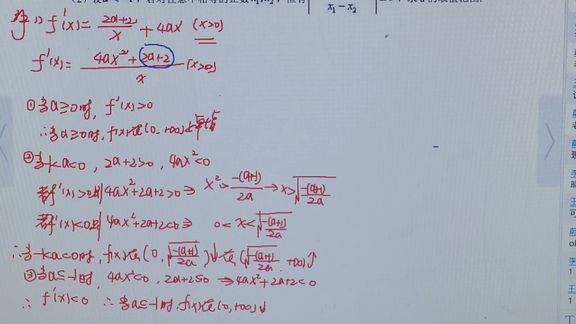 解 (1) f'(x) = \frac{2a+2}{x} + 4ax (x>0)
f'(x) = \frac{4ax^2+2a+2}{x} (x>0)
① 当a≥0时, f'(x)>0
∴ 当a≥0时, f(x)在(0,+∞)上单增
② 当-1<a<0, 2a+2>0, 4ax^2<0
若f'(x)>0则 4ax^2+2a+2>0 ⇒ x^2>\frac{-(a+1)}{2a} → x>\sqrt{\frac{-(a+1)}{2a}}
若f'(x)<0则 4ax^2+2a+2<0 ⇒ 0<x<\sqrt{\frac{-(a+1)}{2a}}
∴ 当-1<a<0时, f(x)在(0,\sqrt{\frac{-(a+1)}{2a}})↓ 在(\sqrt{\frac{-(a+1)}{2a}},+∞)↑
③ 当a≤-1时, 4ax^2<0, 2a+2≤0 ⇒ 4ax^2+2a+2<0
∴ f'(x)<0 ∴ 当a≤-1时 f(x)在(0,+∞)↓